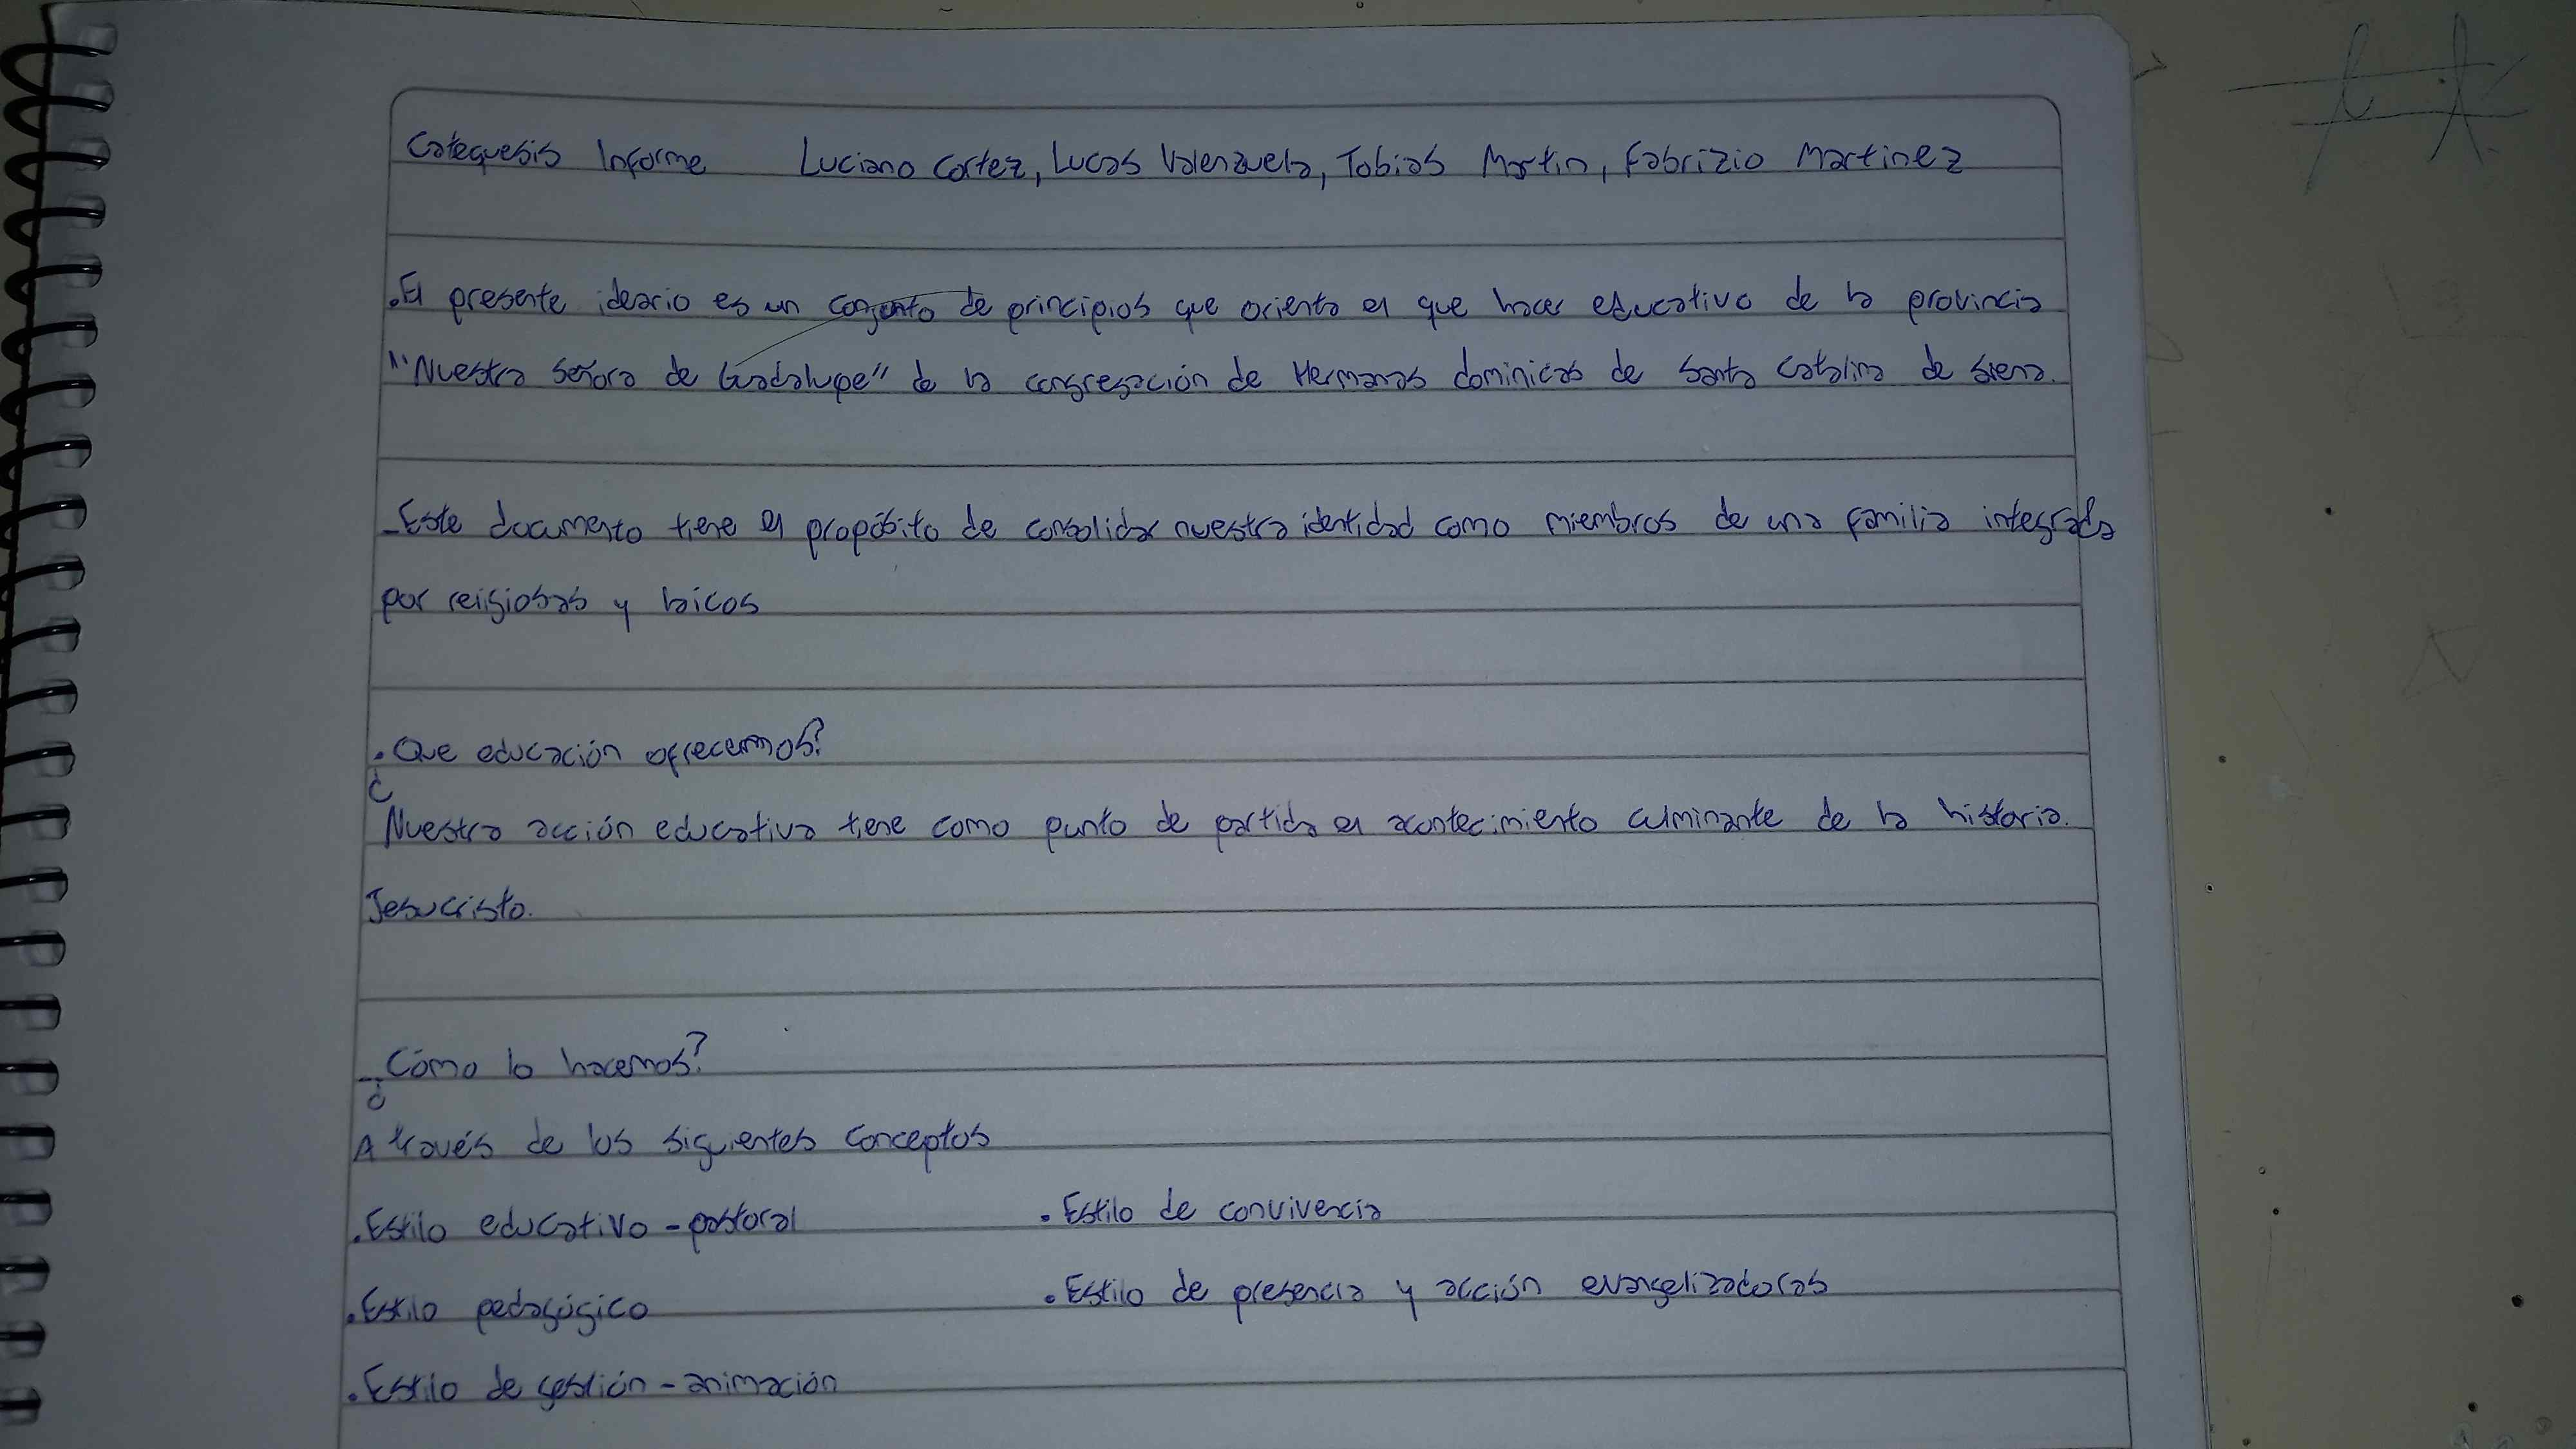 Catequesis Informe Luciano Cortez, Lucas Valenzuela, Tobias Martin, Fabrizio Martinez
.El presente ideario es un conjunto de principios que orienta el que hacer educativo de la provincia
"Nuestra Señora de Guadalupe" de la congregación de Hermanas dominicas de Santa Catalina de Siena.
-Este documento tiene el propósito de consolidar nuestra identidad como miembros de una familia integrada
por religiosas y laicos
.¿Que educación ofrecemos?
Nuestra acción educativa tiene como punto de partida el acontecimiento culminante de la historia.
Jesucristo.
-¿Cómo lo hacemos?
A través de los siguientes conceptos
.Estilo educativo-pastoral .Estilo de convivencia
.Estilo pedagógico .Estilo de presencia y acción evangelizadoras
.Estilo de gestión-animación